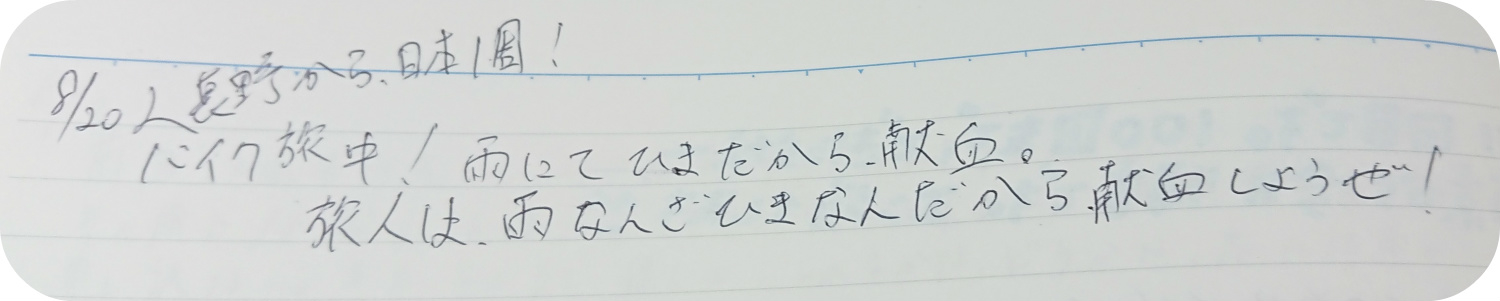 8/20 人 長野から、日本1周!
バイク旅中! 雨にてひまだから、献血。
旅人は、雨なんざひまなんだから献血しようぜ!